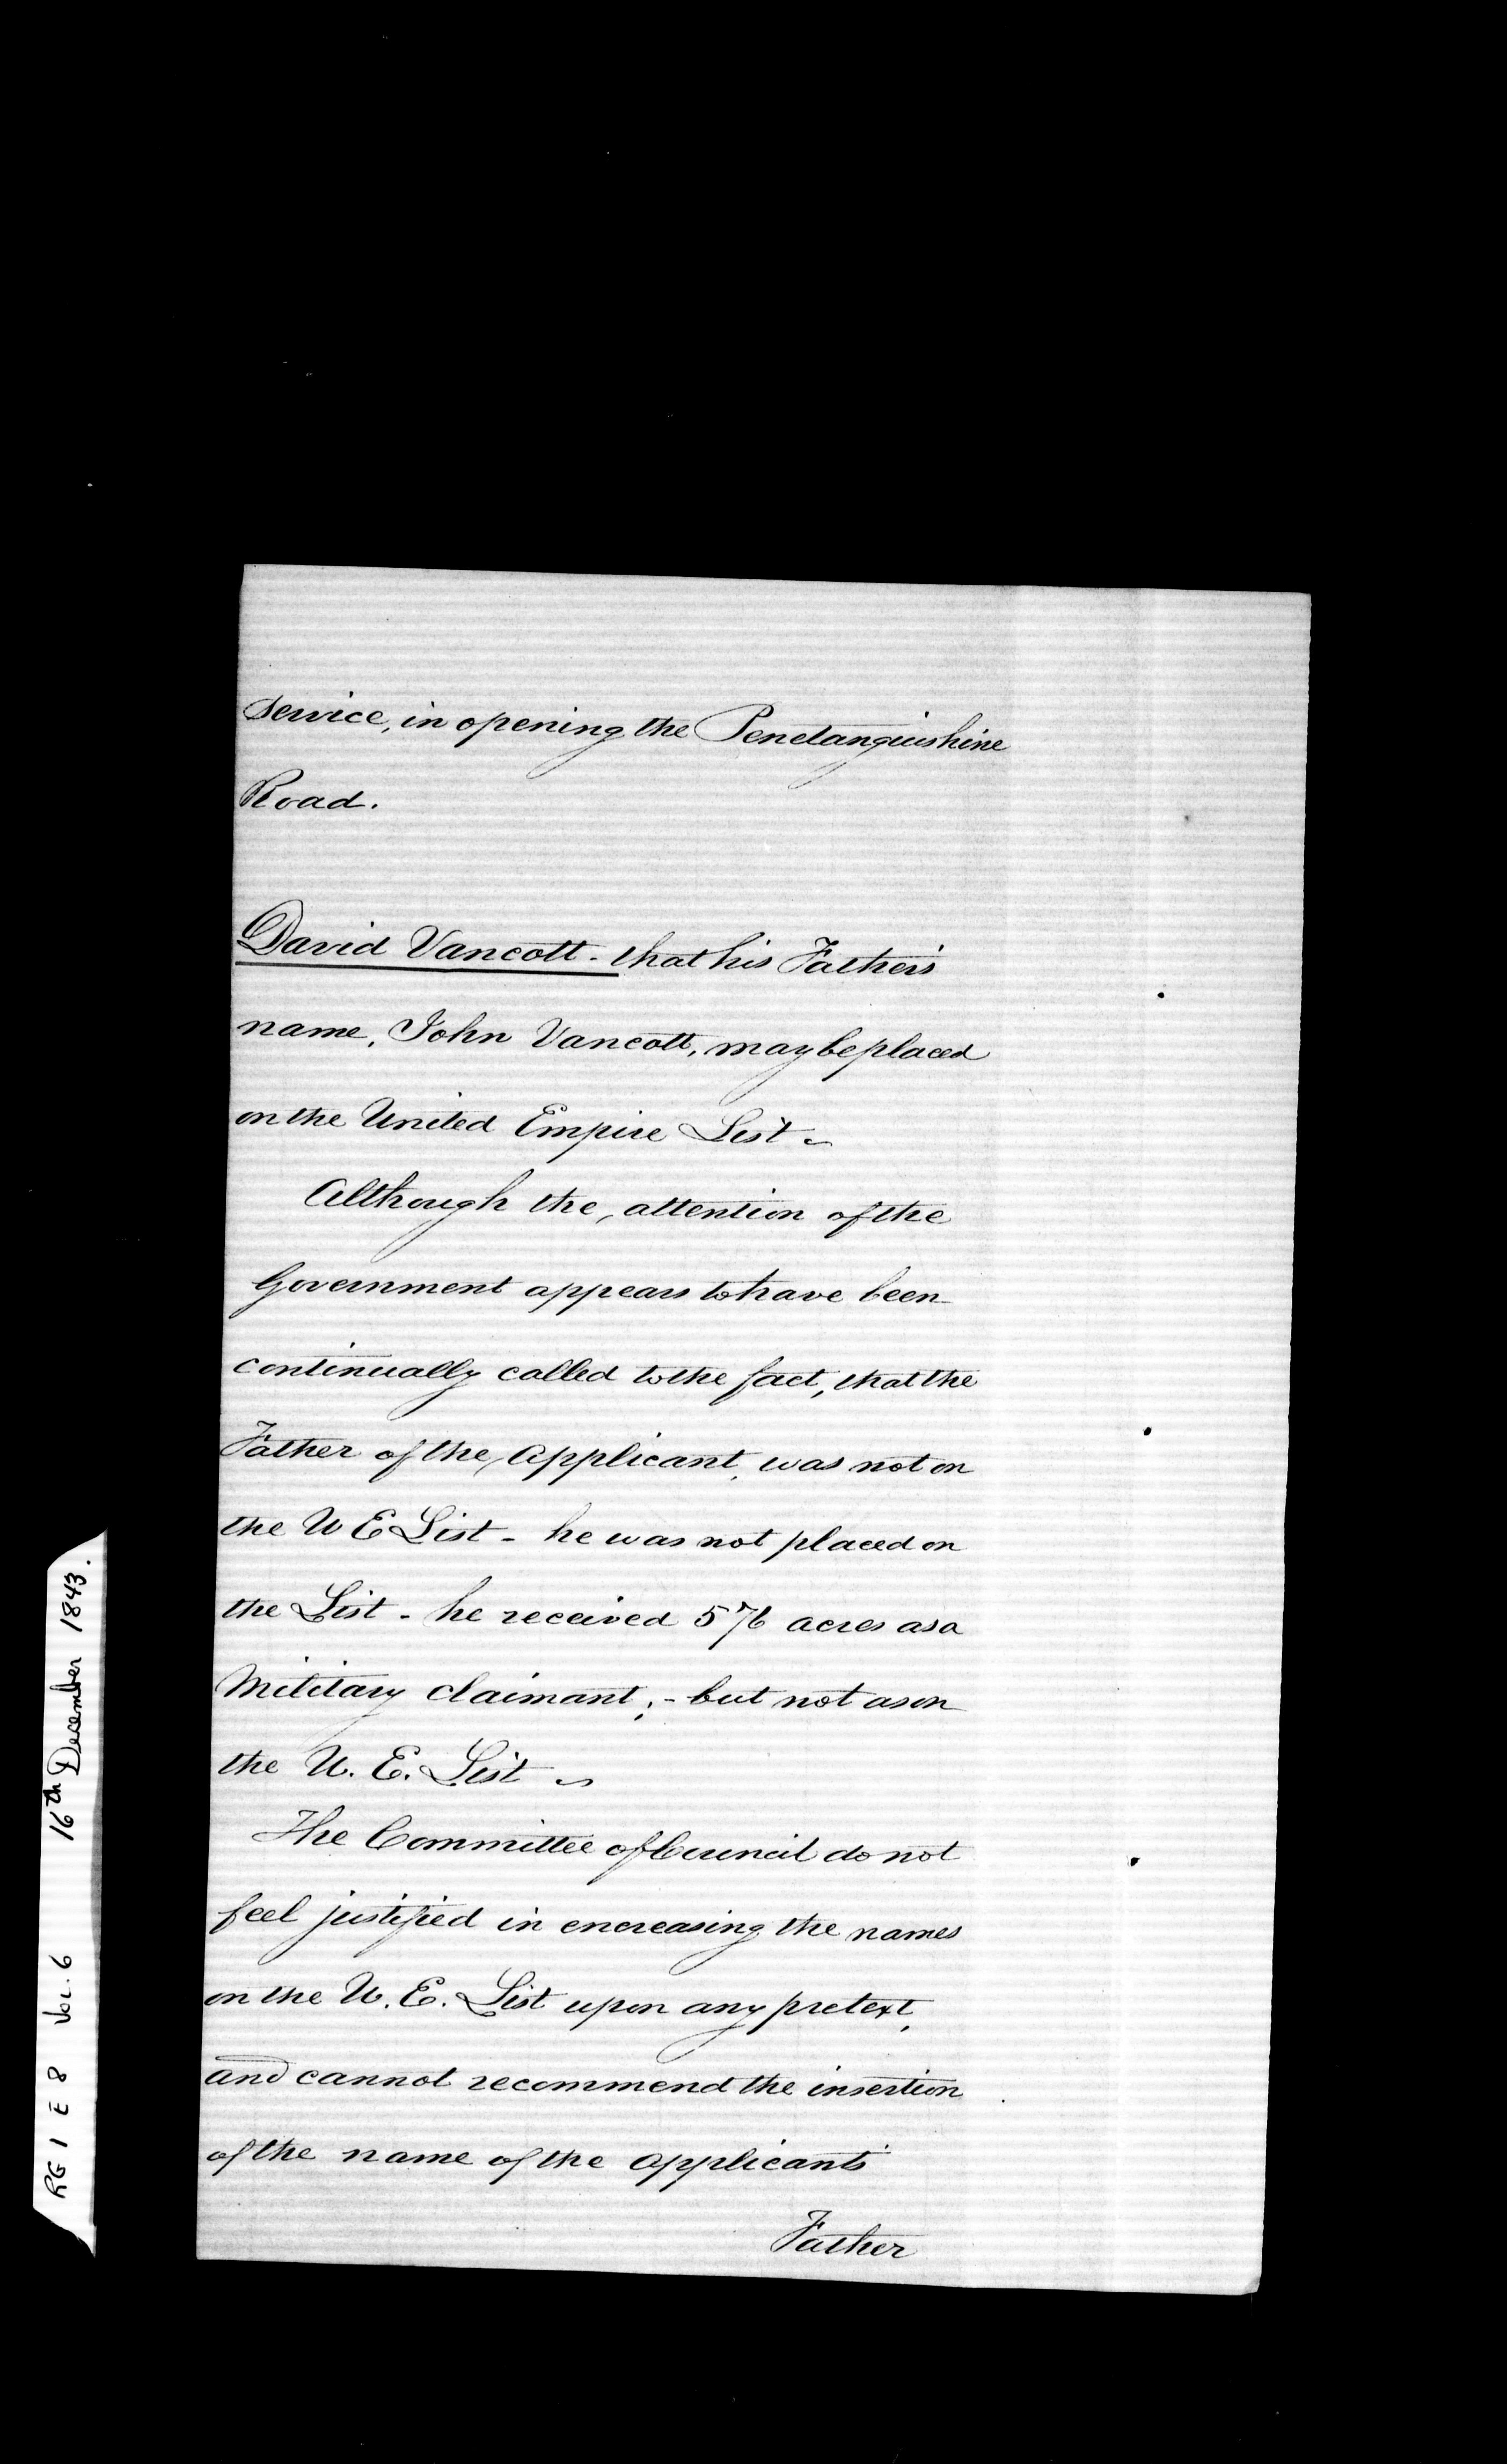 service, in opening the Penetanguishine
Road.
David Vancott - that his Father's
name, John Vancott, may be placed
on the United Empire List ~
Although the attention of the
Government appears to have been
continually called to the fact, that the
Father of the Applicant, was not on
the U E List - he was not placed on
the List - he received 576 acres as a
Military claimant; - but not as on
the U. E. List ~
The Committee of Council do not
feel justified in encreasing the names
on the U. E. List upon any pretext,
and cannot recommend the insertion
of the name of the Applicant's
Father
RG 1 E 8 Vol. 6 16th December 1843.